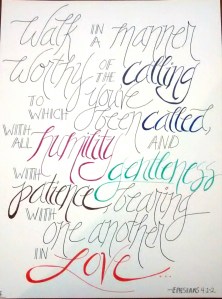 Walk IN A manner
worthy OF THE calling
TO WHICH you've
been called,
WITH ALL humility AND
gentleness
WITH patience, bearing
WITH one another
IN Love...
-EPHESIANS 4:1-2